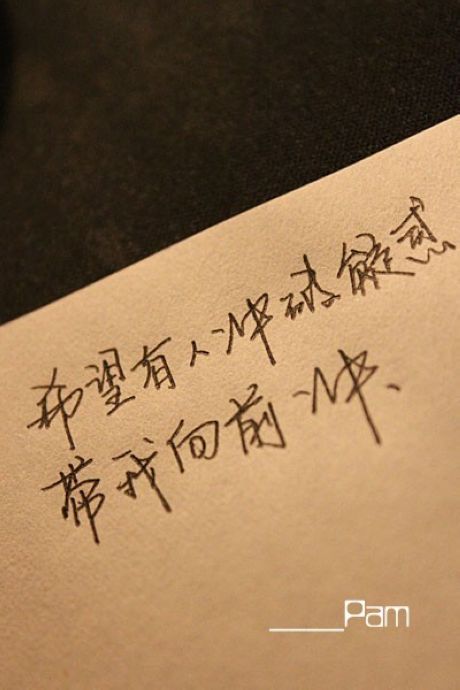 希望有人冲破疑惑
带我向前冲、
____Pam